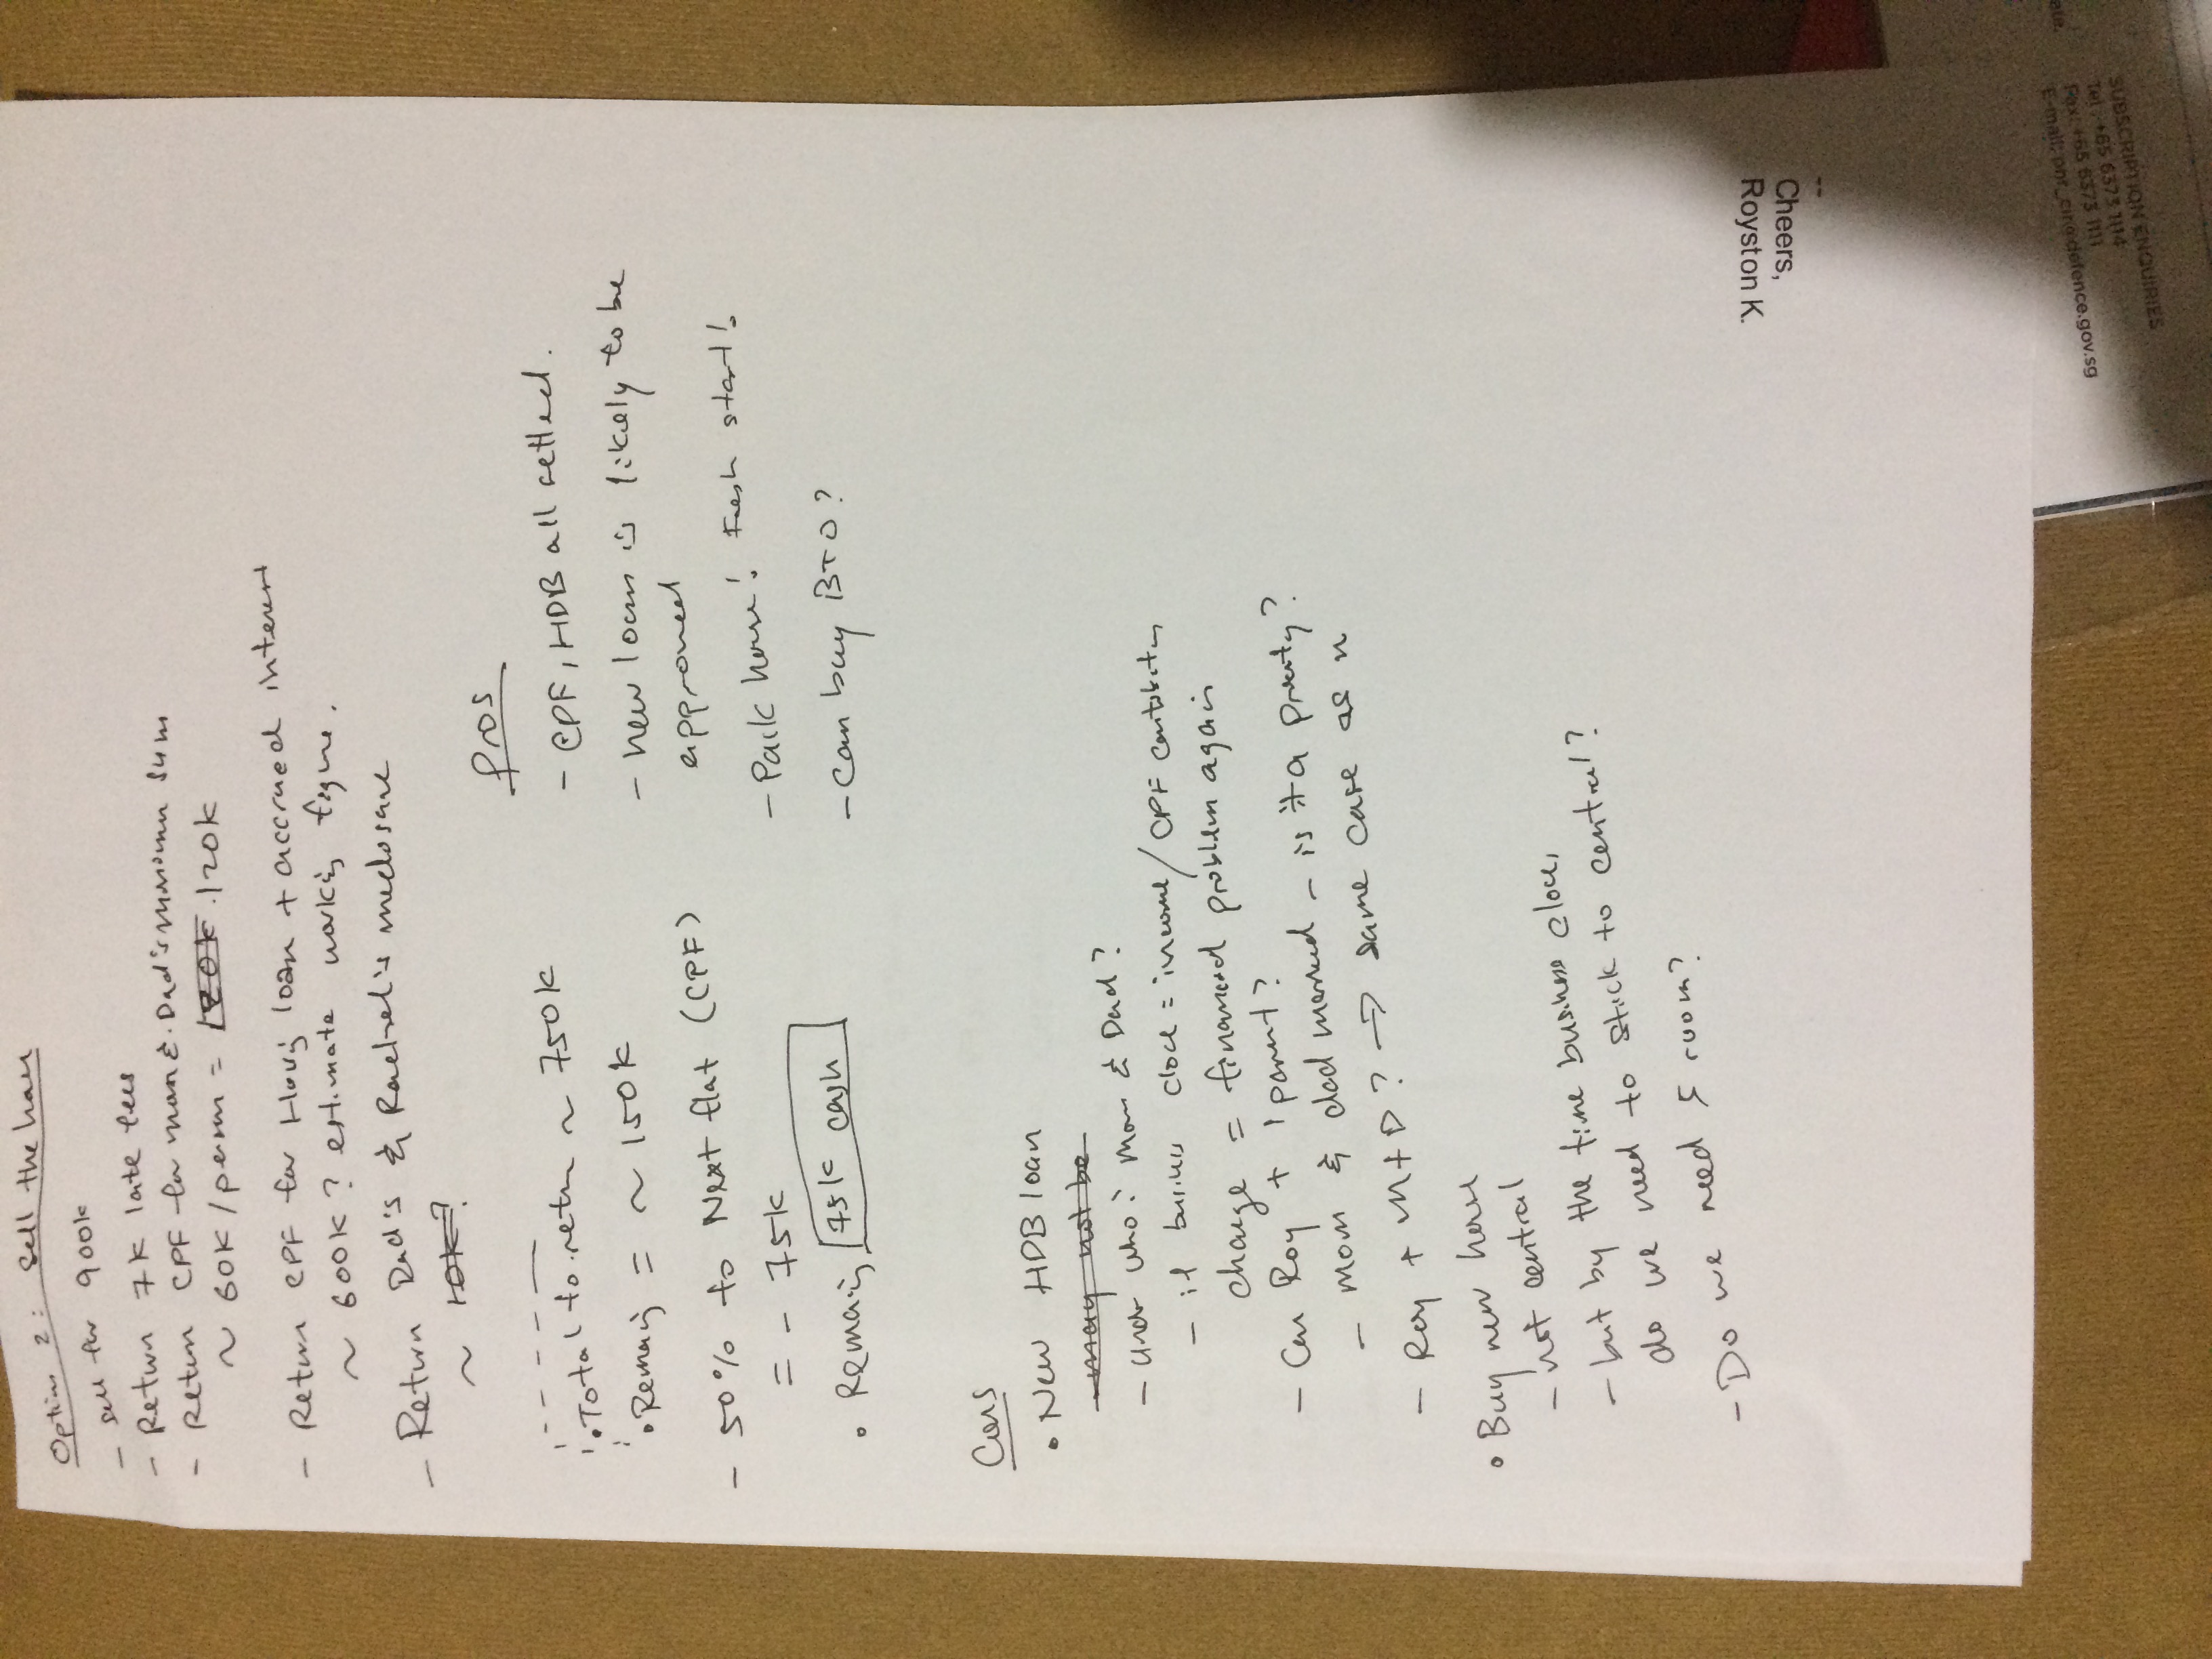 Option 2: Sell the house
- sell for 900k
- Return 7k late fees
- Return CPF for mom & Dad's minimum sum
~ 60k / person = 120k
- Return CPF for Housing loan + accrued interest
~ 600k? estimate working figure.
- Return Dad's & Rachel's medosave
~ 10k?
• Total to return ~ 750k
• Remaining = ~ 150k
- 50% to Next flat (CPF)
= - 75k
• Remaining 75k cash
Pros
- CPF, HDB all settled.
- new loan is likely to be
approved
- Paik house! Fresh start!
- Can buy BTO?
Cons
• New HDB loan
- may not be
- Under who? Mom & Dad?
- if business close = income / CPF contribution
change = financial problem again
- Can Roy + 1 parent?
- mom & dad married - is it a priority?
- Roy + M + D? => same case as n
• Buy new house
- not central
- but by the time business close,
do we need to stick to central?
- Do we need 5 room?
--
Cheers,
Royston K.
SUBSCRIPTION ENQUIRIES
Tel: +65 6373 1114
Fax: +65 6373 1111